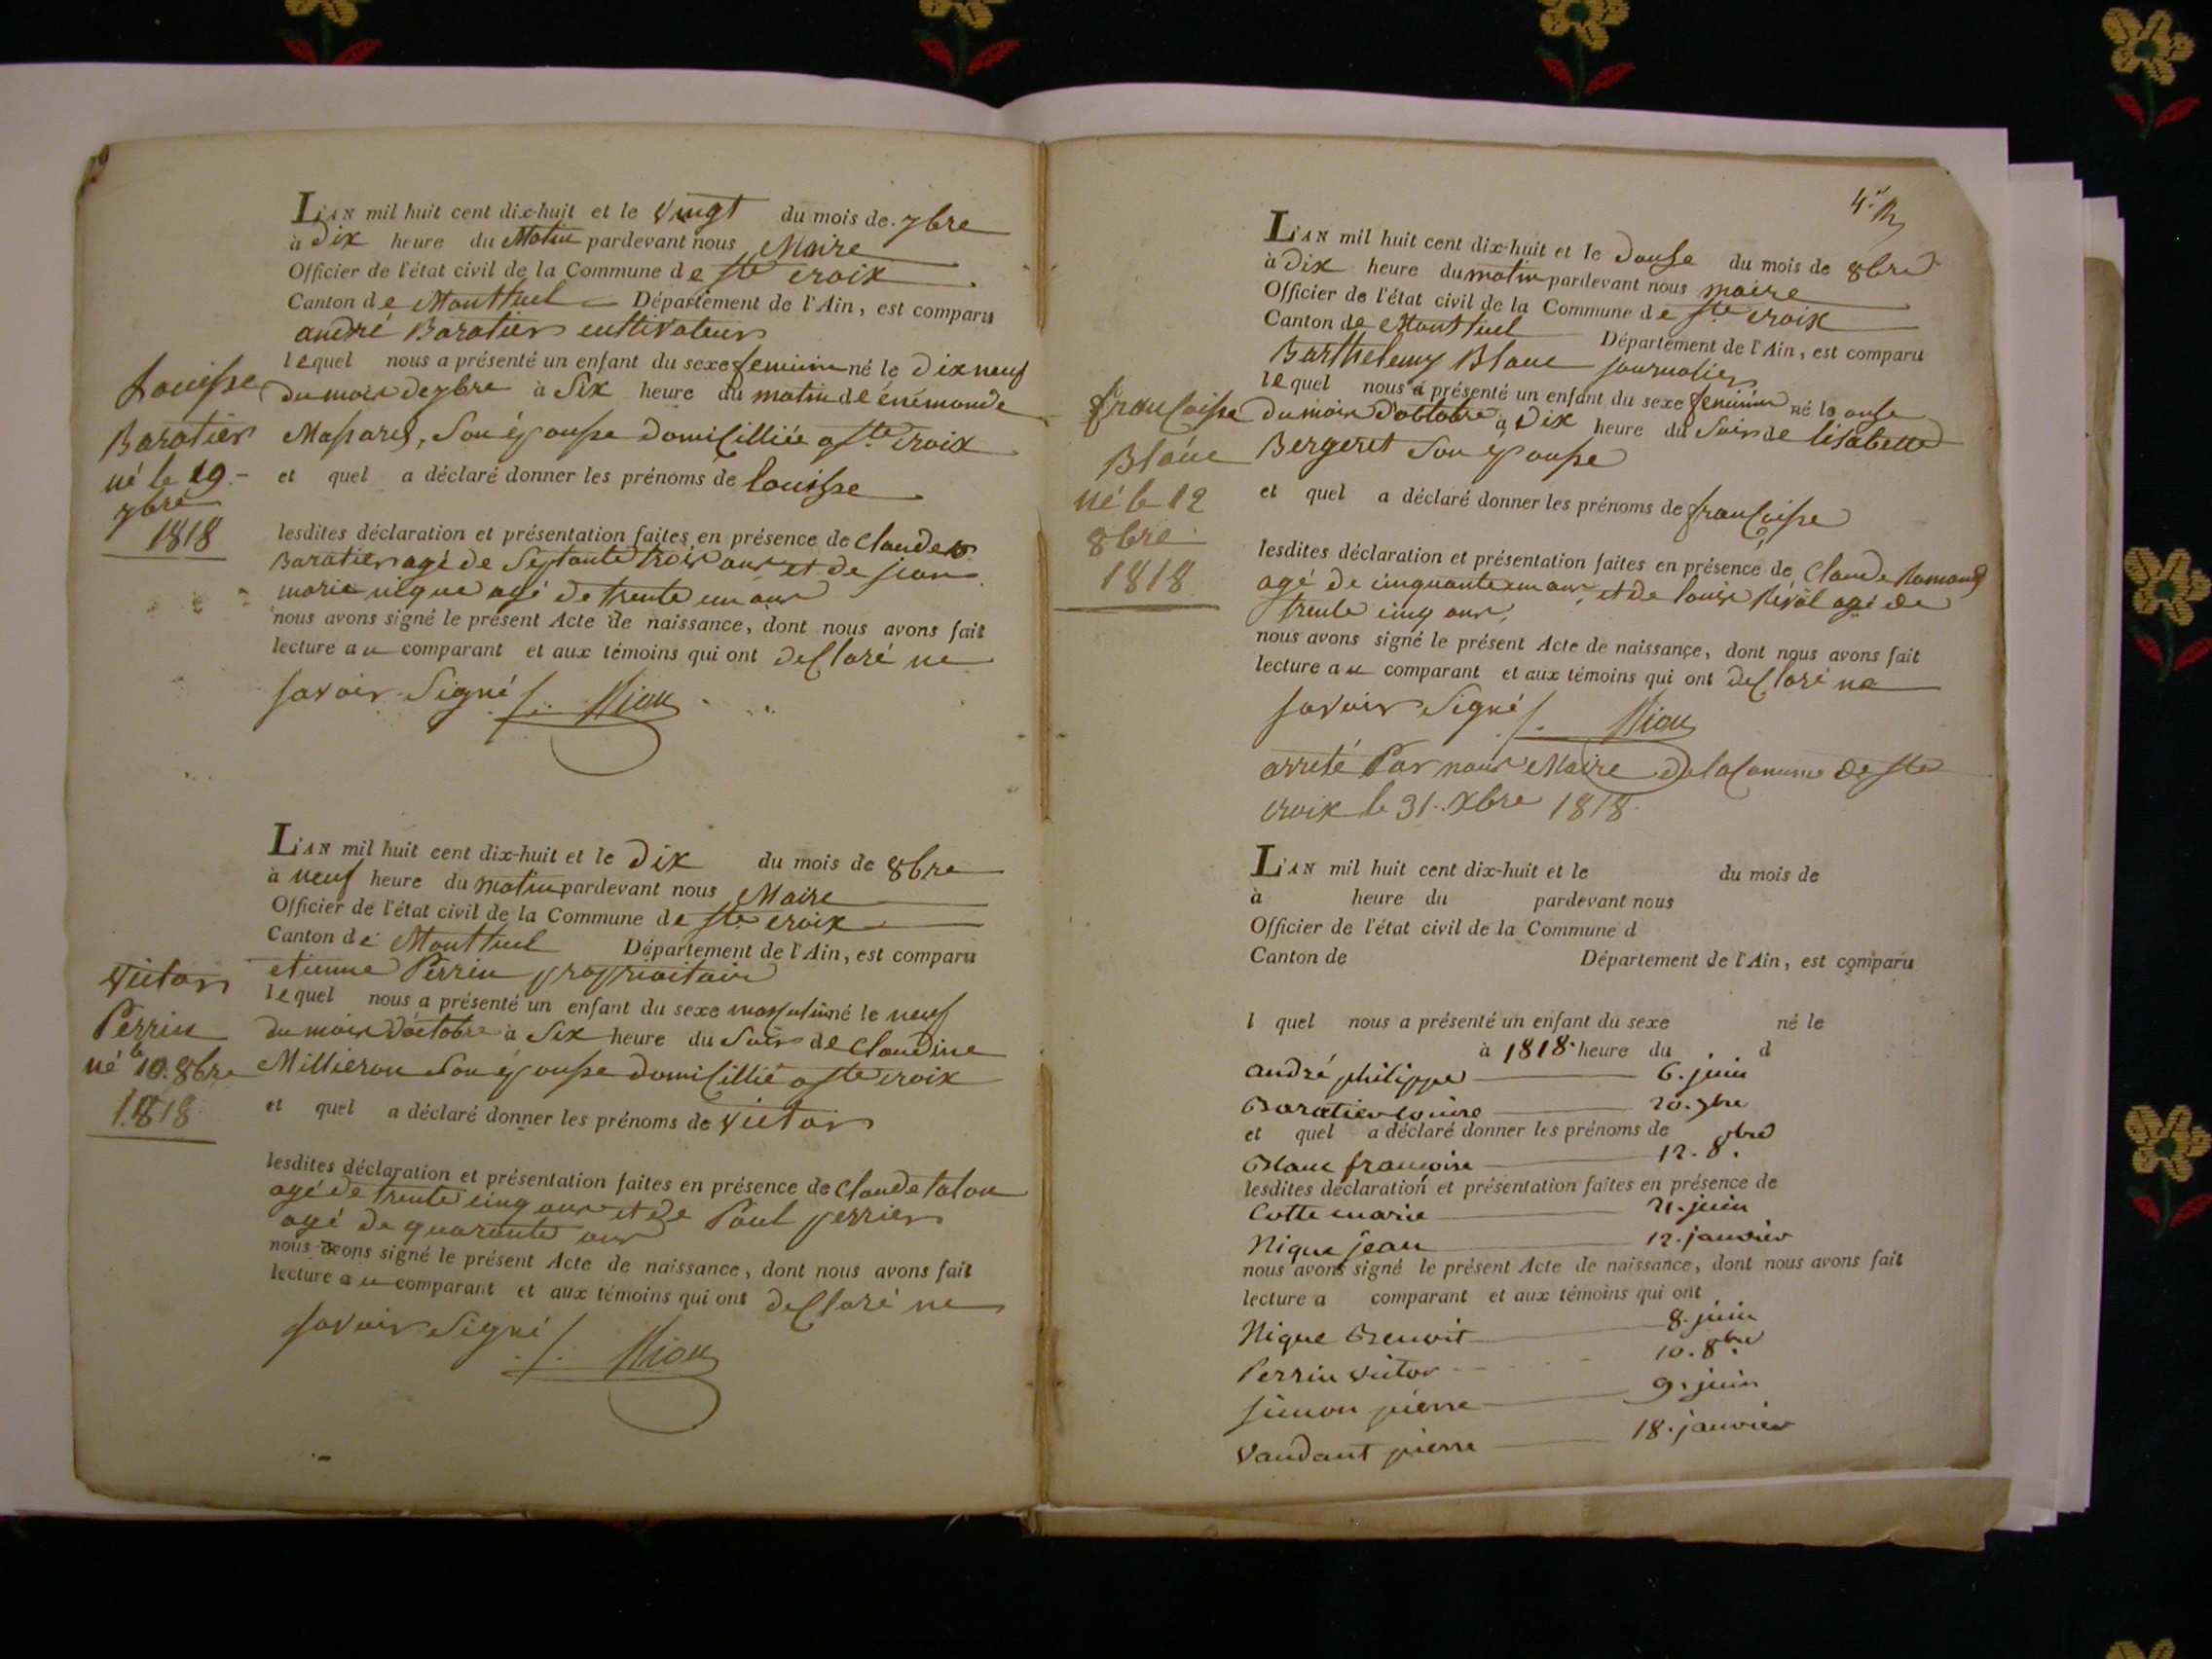 L'AN mil huit cent dix-huit et le vingt du mois de 7bre
à dix heure du Matin pardevant nous Maire
Officier de l'état civil de la Commune de ste croix
Canton de Montluel Département de l'Ain, est comparu
andré Baratier cultivateur
lequel nous a présenté un enfant du sexe feminin né le dix neuf
du mois de 7bre à Six heure du matin de énémonde
Massard, Son épouse domicilliée a ste croix
et quel a déclaré donner les prénoms de louisse
lesdites déclaration et présentation faites en présence de Claude
Baratier agé de Septante trois ans et de jean
marie nique agé de trente un ans
nous avons signé le présent Acte de naissance, dont nous avons fait
lecture au comparant et aux témoins qui ont declaré ne
savoir Signé
Louisse
Baratier
né le 19
7bre
1818
L'AN mil huit cent dix-huit et le dix du mois de 8bre
à neuf heure du matin pardevant nous Maire
Officier de l'état civil de la Commune de ste croix
Canton de Montluel Département de l'Ain, est comparu
etienne Perrin propriaitair
lequel nous a présenté un enfant du sexe masculin né le neuf
du mois d'octobre à Six heure du Soir de Claudine
Millieron Son épouse domicillié a ste croix
et quel a déclaré donner les prénoms de victor
lesdites déclaration et présentation faites en présence de Claude
agé de trente cinq ans et de Paul perrier
agé de quarante ans
nous avons signé le présent Acte de naissance, dont nous avons fait
lecture au comparant et aux témoins qui ont declaré ne
savoir Signé
victor
Perrin
né le 10. 8bre
1818
L'AN mil huit cent dix-huit et le douse du mois de 8bre
à Dix heure du matin pardevant nous maire
Officier de l'état civil de la Commune de ste croix
Canton de Montluel Département de l'Ain, est comparu
Barthelemy Blanc journalier
lequel nous a présenté un enfant du sexe feminin né le onse
du mois d'octobre à Dix heure du Soir de lisabette
Bergeret Son épouse
et quel a déclaré donner les prénoms de françoisse
lesdites déclaration et présentation faites en présence de Claude Romand
agé de cinquante un ans et de louis Réval agé de
trente cinq ans
nous avons signé le présent Acte de naissance, dont nous avons fait
lecture au comparant et aux témoins qui ont declaré ne
savoir Signé
arreté Par nous Maire de la Comune de ste
croix le 31. Xbre 1818
françoisse
Blanc
né le 12
8bre
1818
L'AN mil huit cent dix-huit et le du mois de
à heure du pardevant nous
Officier de l'état civil de la Commune d
Canton de Département de l'Ain, est comparu
l quel nous a présenté un enfant du sexe né le
à 1818. heure du d
andré philippe 6. juin
Baratier louise 20. 7bre
et quel a déclaré donner les prénoms de
Blanc françoise 12. 8bre
lesdites déclaration et présentation faites en présence de
Cotte marie 21. juin
Nique jean 12. janvier
nous avons signé le présent Acte de naissance, dont nous avons fait
lecture a comparant et aux témoins qui ont
Nique Benoit 8. juin
Perrin victor 10. 8bre
simon pierre 9. juin
Vaudant pierre 18. janvier